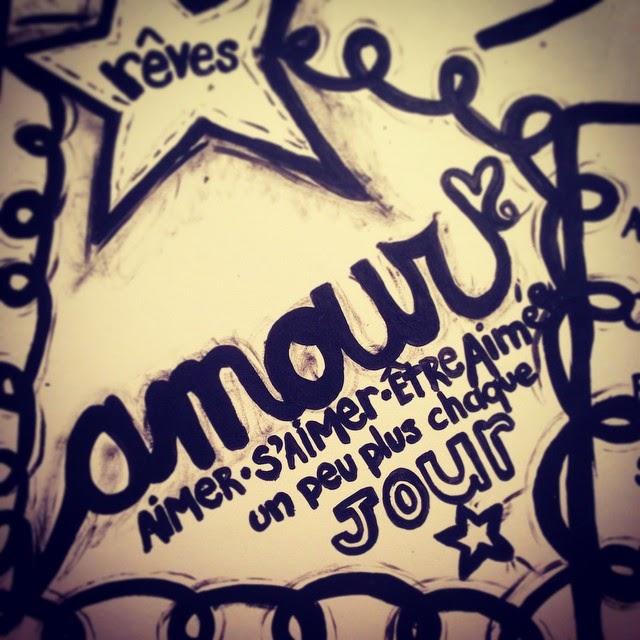 rêves
amour
AiMER • S'AiMER • ÊTRE AiMÉ
un peu plus chaque
JOUR